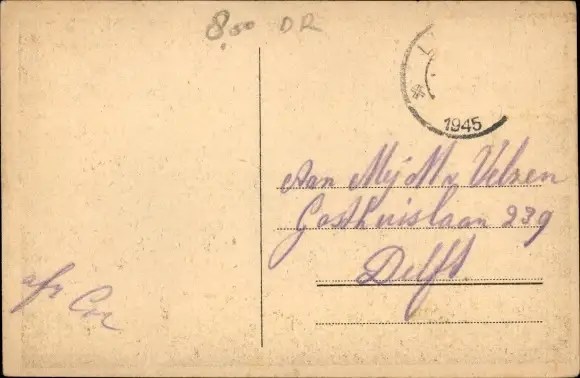 8,00 DR
1945
Aan Mej M v Velzen
Gasthuislaan 239
Delft
afz